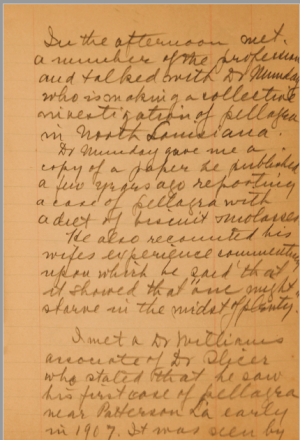 In the afternoon met
a number of the profession
and talked with Dr Munday
who is making a collective
investigation of pellagra
in North Louisiana.
Dr Munday gave me a
copy of a paper he published
a few years ago reporting
a case of pellagra with
a diet of biscuit & molasses
He also recounted his
wifes experience commenting
upon which he said that
it showed that "one might
starve in the midst of plenty."
I met a Dr Williams
associate of Dr Slicer
who stated that he saw
his first case of pellagra
near Patterson La early
in 1907. It was seen by